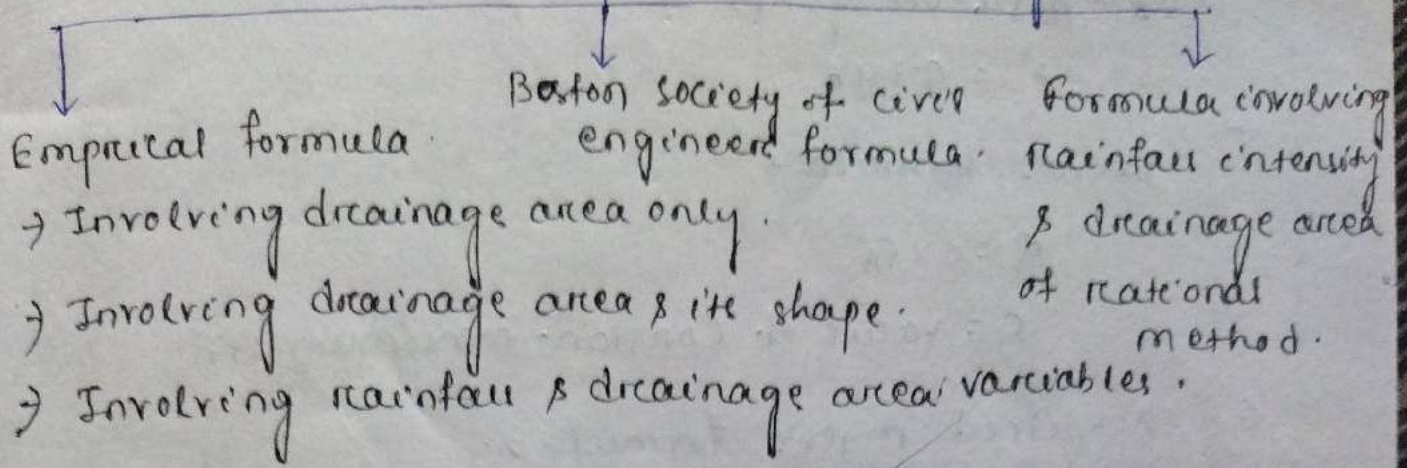 Emprical formula.
→ Involving drainage area only.
→ Involving drainage area & its shape.
→ Involving rainfall & drainage area variables.
Boston society of civil
engineers formula.
Formula involving
rainfall intensity
& drainage area
of rational
method.